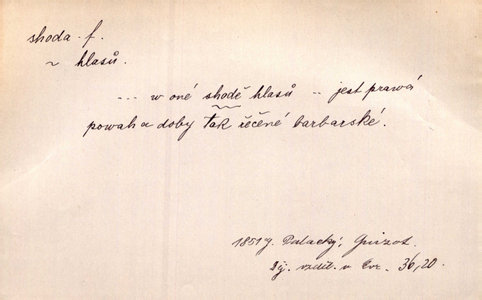 shoda f.
~ hlasů.
... w oné shodě hlasů .. jest prawá
powaha doby tak řečéné barbarské.
1851 J. Palacký, Guizot.
Děj. vzděl. v Evr. 36,20.